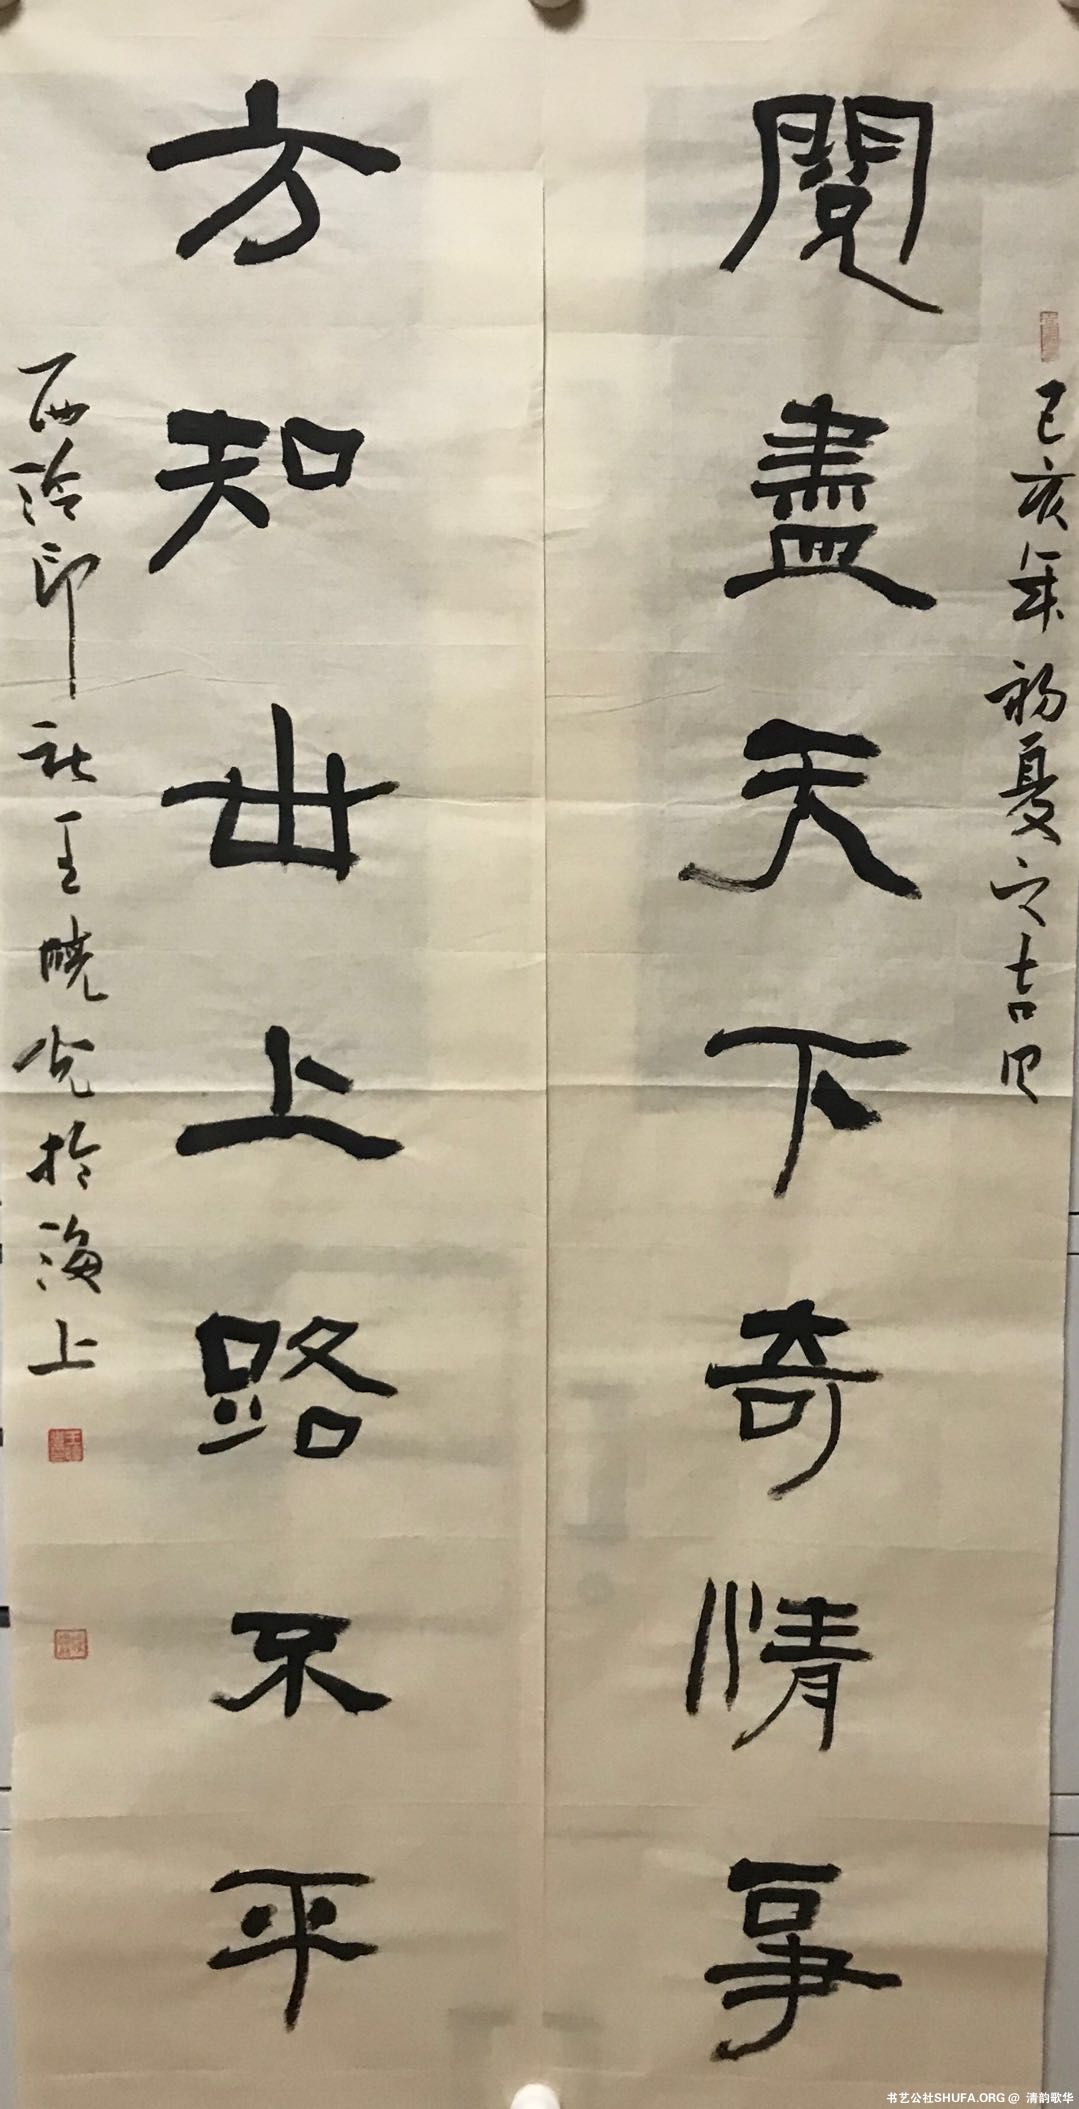 己亥年初夏之吉日
閱盡天下奇情事
方知世上路不平
西泠印社王曉光於海上
书艺公社SHUFA.ORG @ 清韵歌华